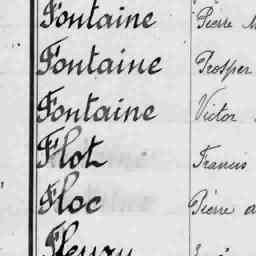 Fontaine Pierre
Fontaine Prosper
Fontaine Victor
Flot Francis
Floc Pierre
Fleury